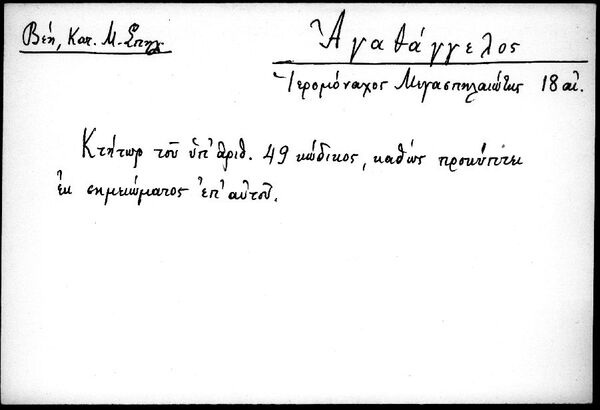 Βέη, Κατ. Μ. Σπηλ.
Ἀγαθάγγελος
Ἱερομόναχος Μεγασπηλαιώτης 18 αἰ.
Κτήτωρ τοῦ ὑπ' ἀριθ. 49 κώδικος, καθὼς προκύπτει
ἐκ σημειώματος ἐπ' αὐτοῦ.